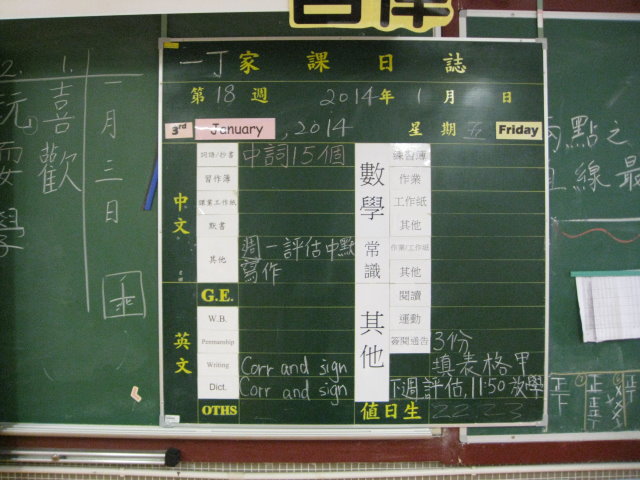 一丁家課日誌
第18週 2014年1月 日
3rd January, 2014 星期五 Friday
中文
詞語/抄書 中詞15個
習作簿
課業工作紙
默書
其他 週一評估中默
寫作
G.E.
英文
W.B.
Penmanship
Writing Corr and sign
Dict. Corr and sign
OTHS
數學
練習簿
作業
工作紙
其他
常識
作業/工作紙
其他
其他
閱讀
運動
簽閱通告 3份
填表格甲
下週評估,11:50放學
值日生 22, 23
一月三日
1. 喜歡
2. 玩耍
兩點之
線最
正下